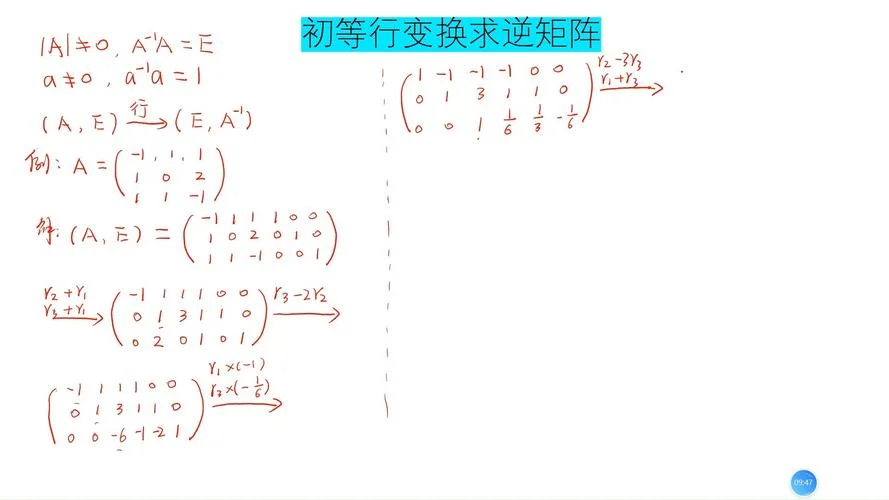 初等行变换求逆矩阵
|A|≠0, A⁻¹A = E
a≠0, a⁻¹a = 1
(A, E) 行→ (E, A⁻¹)
例: A = ( -1, 1, 1
1 0 2
1 1 -1 )
解: (A, E) = ( -1 1 1 1 0 0
1 0 2 0 1 0
1 1 -1 0 0 1 )
r₂+r₁
r₃+r₁
→ ( -1 1 1 1 0 0
0 1 3 1 1 0
0 2 0 1 0 1 ) r₃-2r₂ →
( -1 1 1 1 0 0
0 1 3 1 1 0
0 0 -6 -1 -2 1 )
r₁×(-1)
r₃×(-1/6) →
( 1 -1 -1 -1 0 0
0 1 3 1 1 0
0 0 1 1/6 1/3 -1/6 )
r₂-3r₃
r₁+r₃ →
09:47